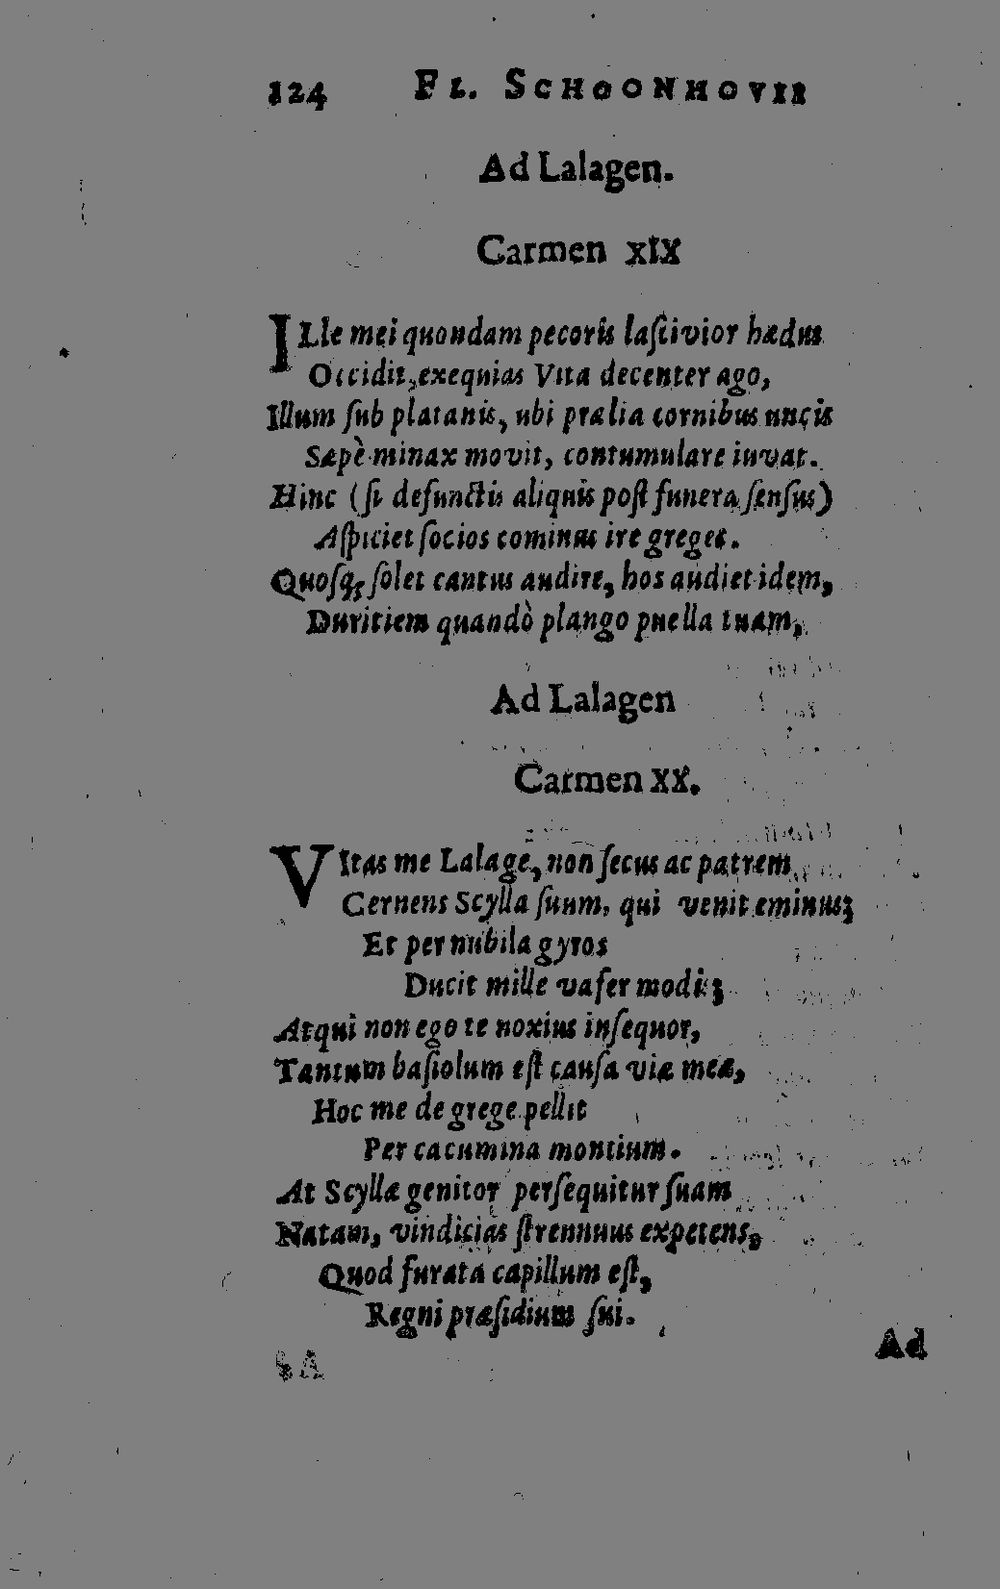 124 FL. SCHOONHOVII
Ad Lalagen.
Carmen XIX
ILle mei quondam pecoris laſcivior hædus
Occidit, exequias Vita decenter ago,
Illum ſub platanis, ubi prælia cornibus uncis
Sæpè minax movit, contumulare iuvat.
Hinc (ſi defunctis aliquis poſt funera ſenſus)
Aſpiciet ſocios cominus ire greges.
Quoſq; ſolet cantus audire, hos audiet idem,
Duritiem quandò plango puella tuam,
Ad Lalagen
Carmen XX.
VItas me Lalage, non ſecus ac patrem
Cernens Scylla ſuum, qui venit eminus;
Et per nubila gyros
Ducit mille vafer modis;
Atqui non ego te noxius inſequor,
Tantum baſiolum eſt cauſa viæ meæ,
Hoc me de grege pellit
Per cacumina montium.
At Scyllæ genitor perſequitur ſuam
Natam, vindicias ſtrennuus expetens,
Quod furata capillum eſt,
Regni præſidium ſui.
Ad